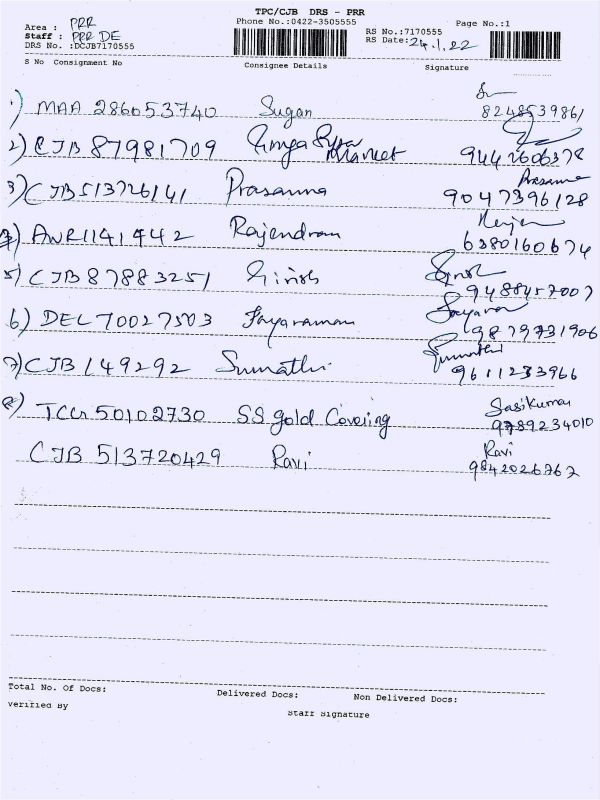 TPC/CJB DRS - PRR
Area : PRR Phone No.:0422-3505555 RS No.:7170555 Page No.:1
Staff : PRR DE RS Date:24.1.22
DRS No. :DCJB7170555
S No Consignment No Consignee Details Signature
1) MAA 286053740 Sugan 8248539861
2) CJB 87981709 9442606378
3) CJB 513726141 Prasanna Prasanna 9047396128
AWR1141442 Rajendran 6380160674
5) CJB 87883251 Girish Girish 9488457007
6) DEL 70027503 Jayaraman Jayaram 9879731906
7) CJB 149292 Sumathi Sumathi 9611233966
8) 50102730 SS gold Covering Sasikumar 9789234010
CJB 513720429 Ravi Ravi 9842026767
Total No. Of Docs: Delivered Docs: Non Delivered Docs:
Verified By Staff Signature